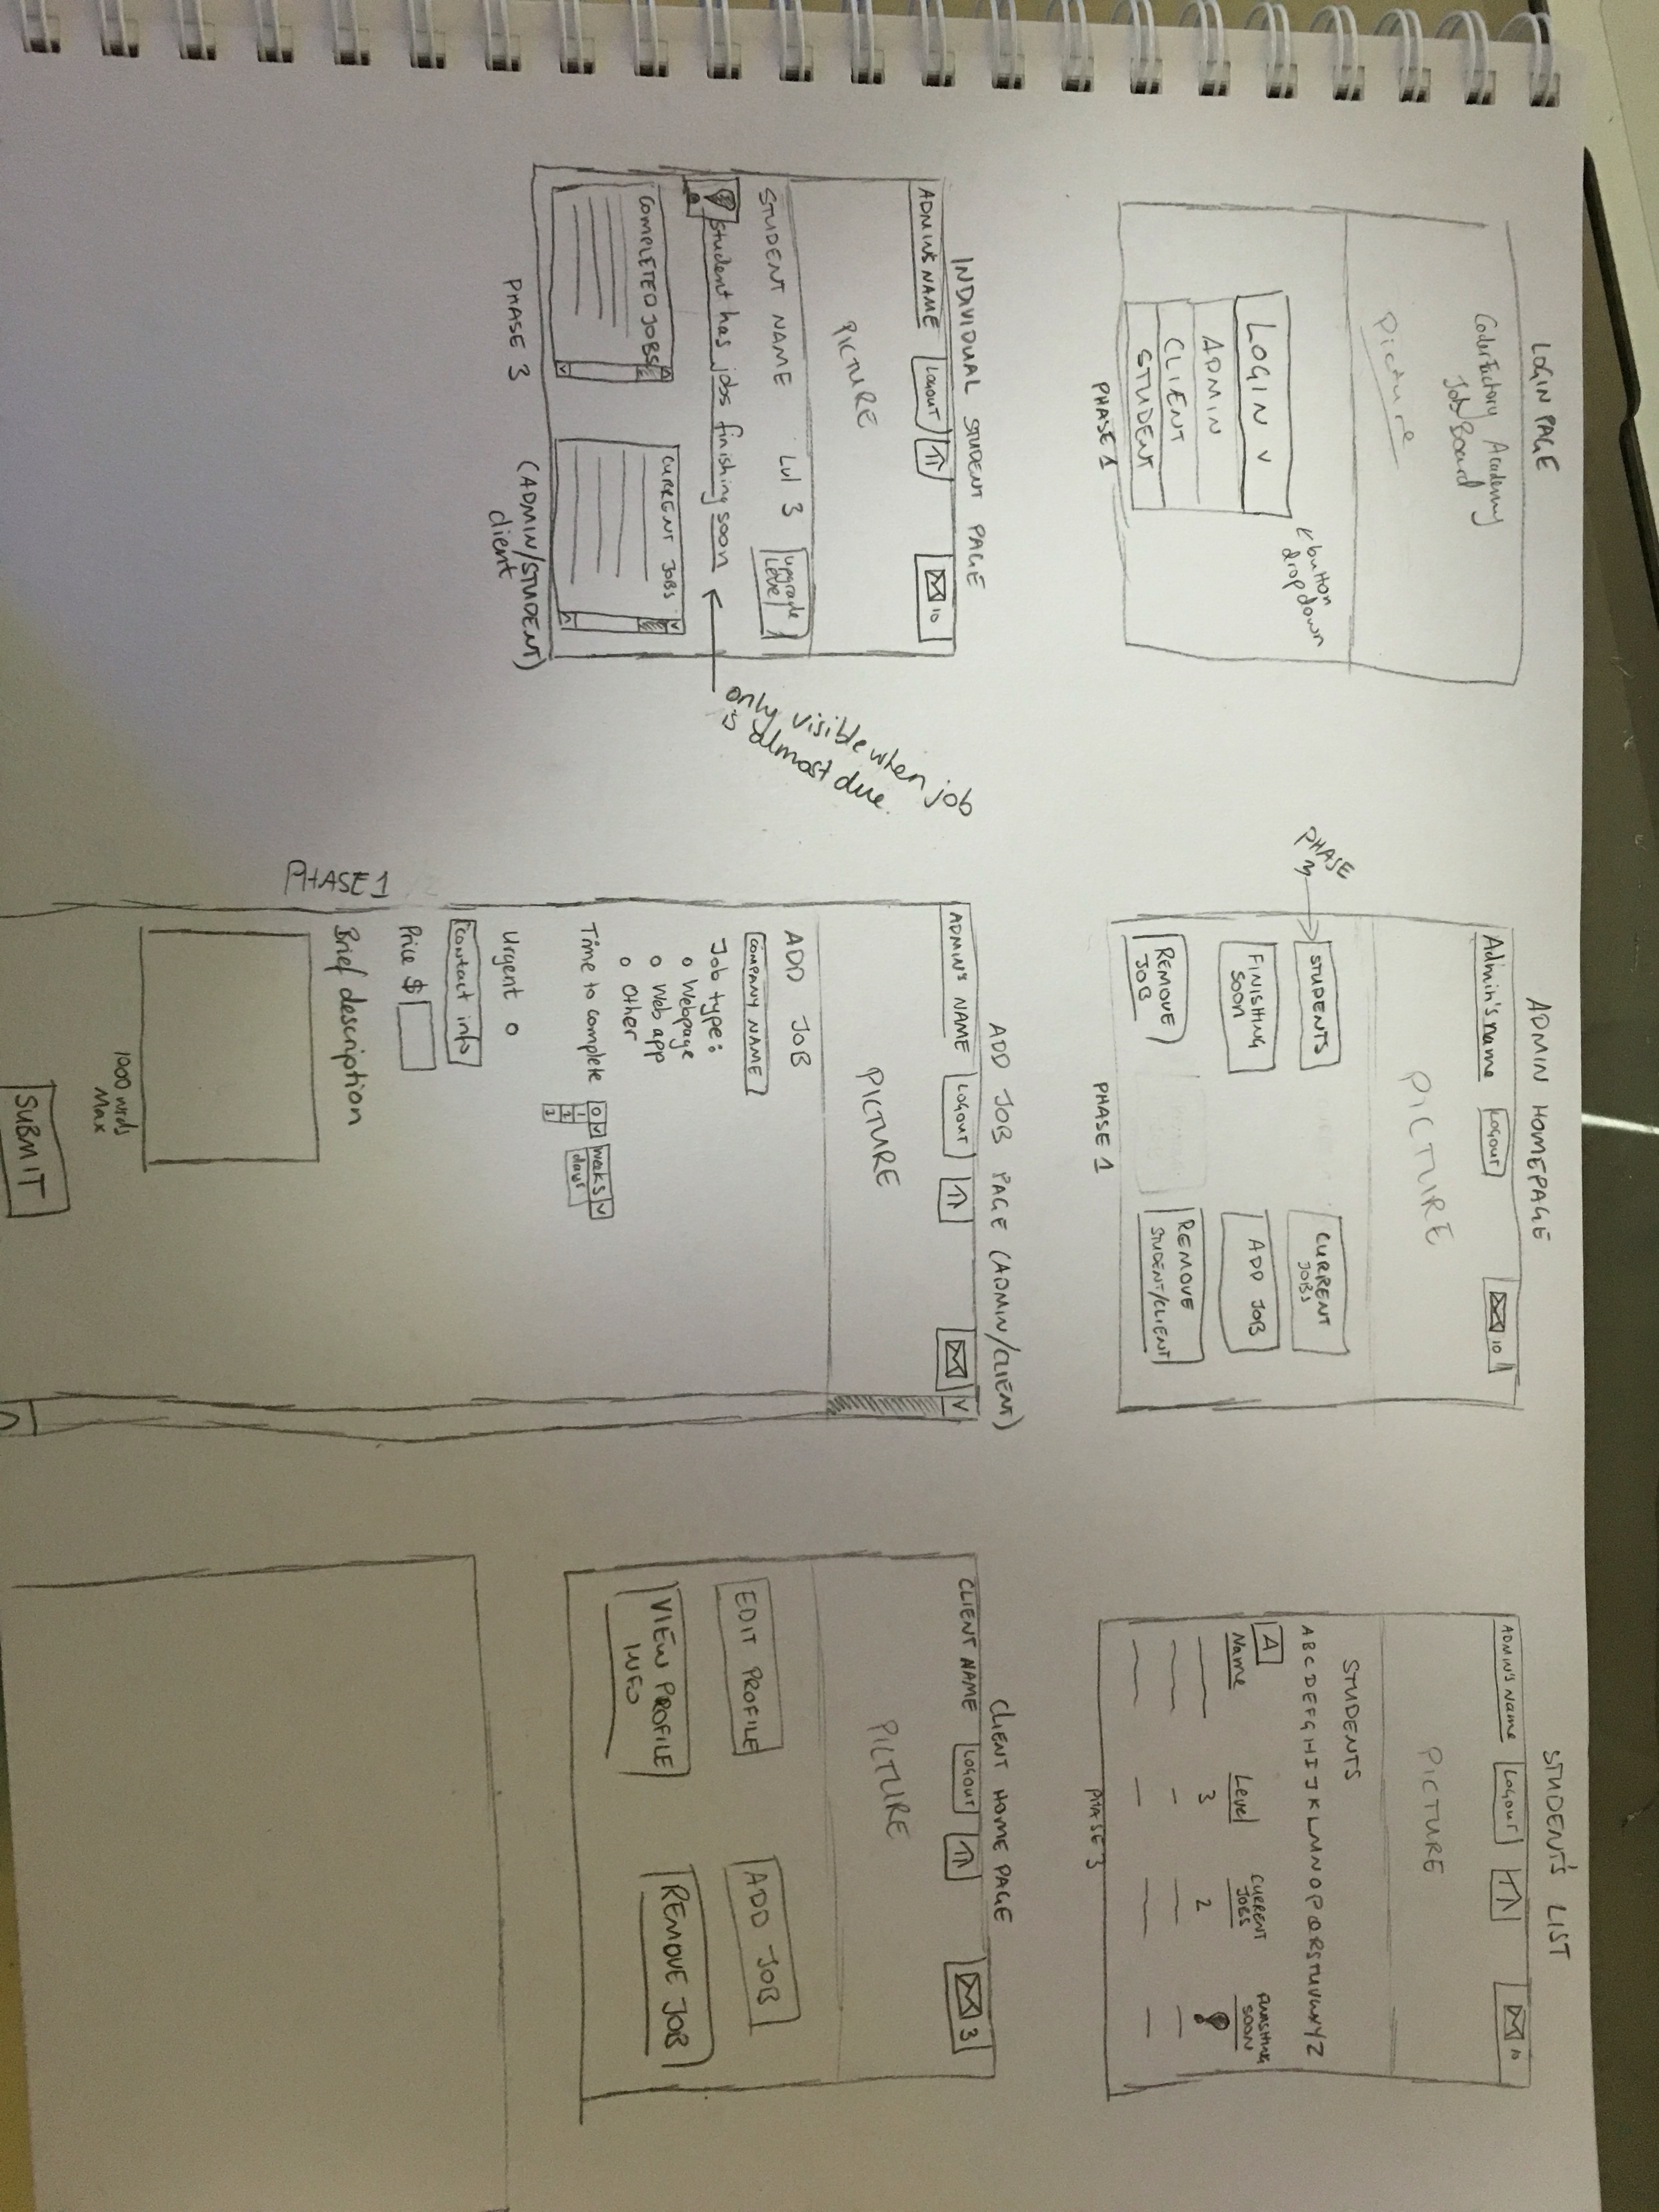 LOGIN PAGE
CoderFactory Academy
Job Board
Picture
LOGIN v
ADMIN
CLIENT
STUDENT
button
dropdown
PHASE 1
ADMIN HOMEPAGE
Admin's name
Logout
10
PICTURE
PHASE
3
STUDENTS
CURRENT
JOBS
FINISHING
SOON
ADD JOB
REMOVE
JOB
REMOVE
STUDENT/CLIENT
PHASE 1
STUDENT'S LIST
ADMIN'S Name
LOGOUT
10
PICTURE
STUDENTS
A B C D E F G H I J K L M N O P Q R S T U V W X Y Z
A
Name
Level
CURRENT
JOBS
FINISHING
SOON
3
2
PHASE 3
INDIVIDUAL STUDENT PAGE
ADMINS NAME
Logout
10
PICTURE
STUDENT NAME
Lvl 3
upgrade
Level
Student has jobs finishing soon
only visible when job
is almost due.
COMPLETED JOBS
CURRENT JOBS
PHASE 3
(ADMIN/STUDENT)
client
ADD JOB PAGE (ADMIN/CLIENT)
ADMIN'S NAME
LOGOUT
PICTURE
ADD JOB
COMPANY NAME
Job type:
Webpage
Web app
Other
Time to complete
0 v
weeks v
1
days
2
Urgent
contact info
Price $
Brief description
1000 words
Max
SUBMIT
PHASE 1
CLIENT HOME PAGE
CLIENT NAME
LOGOUT
3
PICTURE
EDIT PROFILE
ADD JOB
VIEW PROFILE
INFO
REMOVE JOB